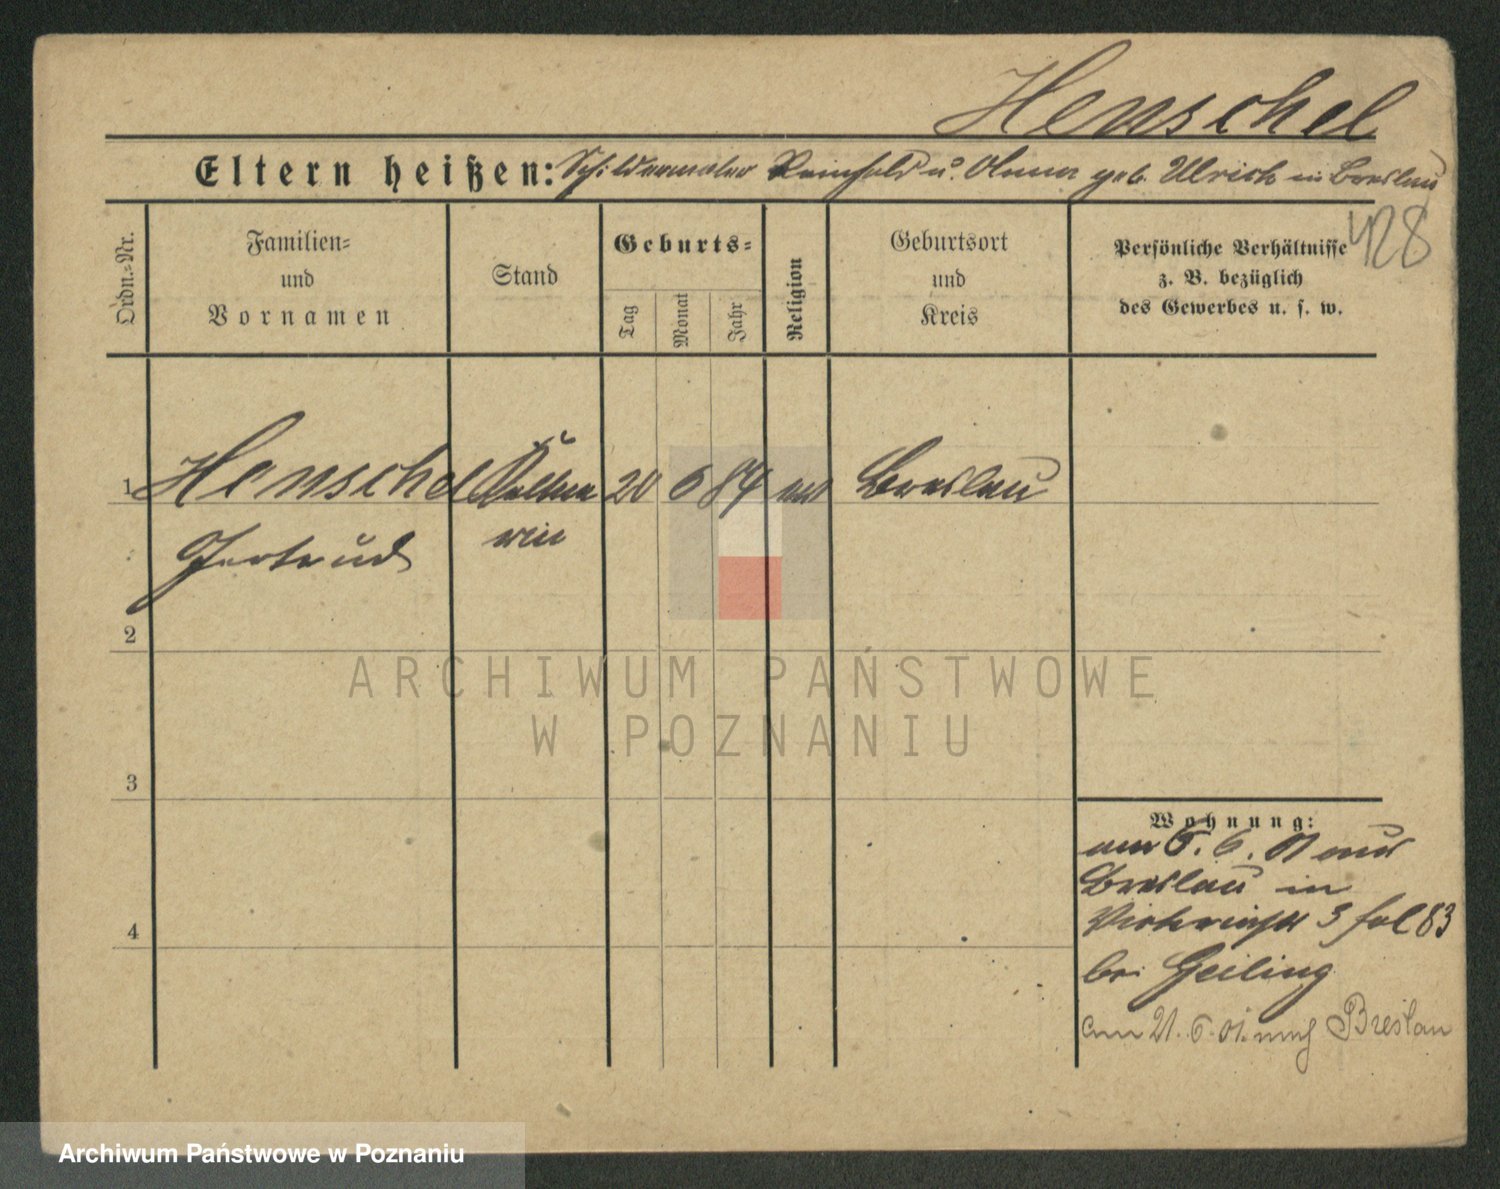 Henschel
Eltern heißen: Schildermaler Reinhold u. Anna geb. Ulrich in Breslau
428
Ordn.-Nr.
Familien-
und
Vornamen
Stand
Geburts-
Tag
Monat
Jahr
Religion
Geburtsort
und
Kreis
Persönliche Verhältnisse
z. B. bezüglich
des Gewerbes u. s. w.
1 Henschel Kellne 20 6 84 Breslau
Gertrud rin
2
ARCHIWUM PAŃSTWOWE
W POZNANIU
3
Wohnung:
am 5. 6. 01 aus
Breslau in
Victoriastr 3 fol 83
bei Geiling
am 21. 6. 01. nach Breslau
4
Archiwum Państwowe w Poznaniu